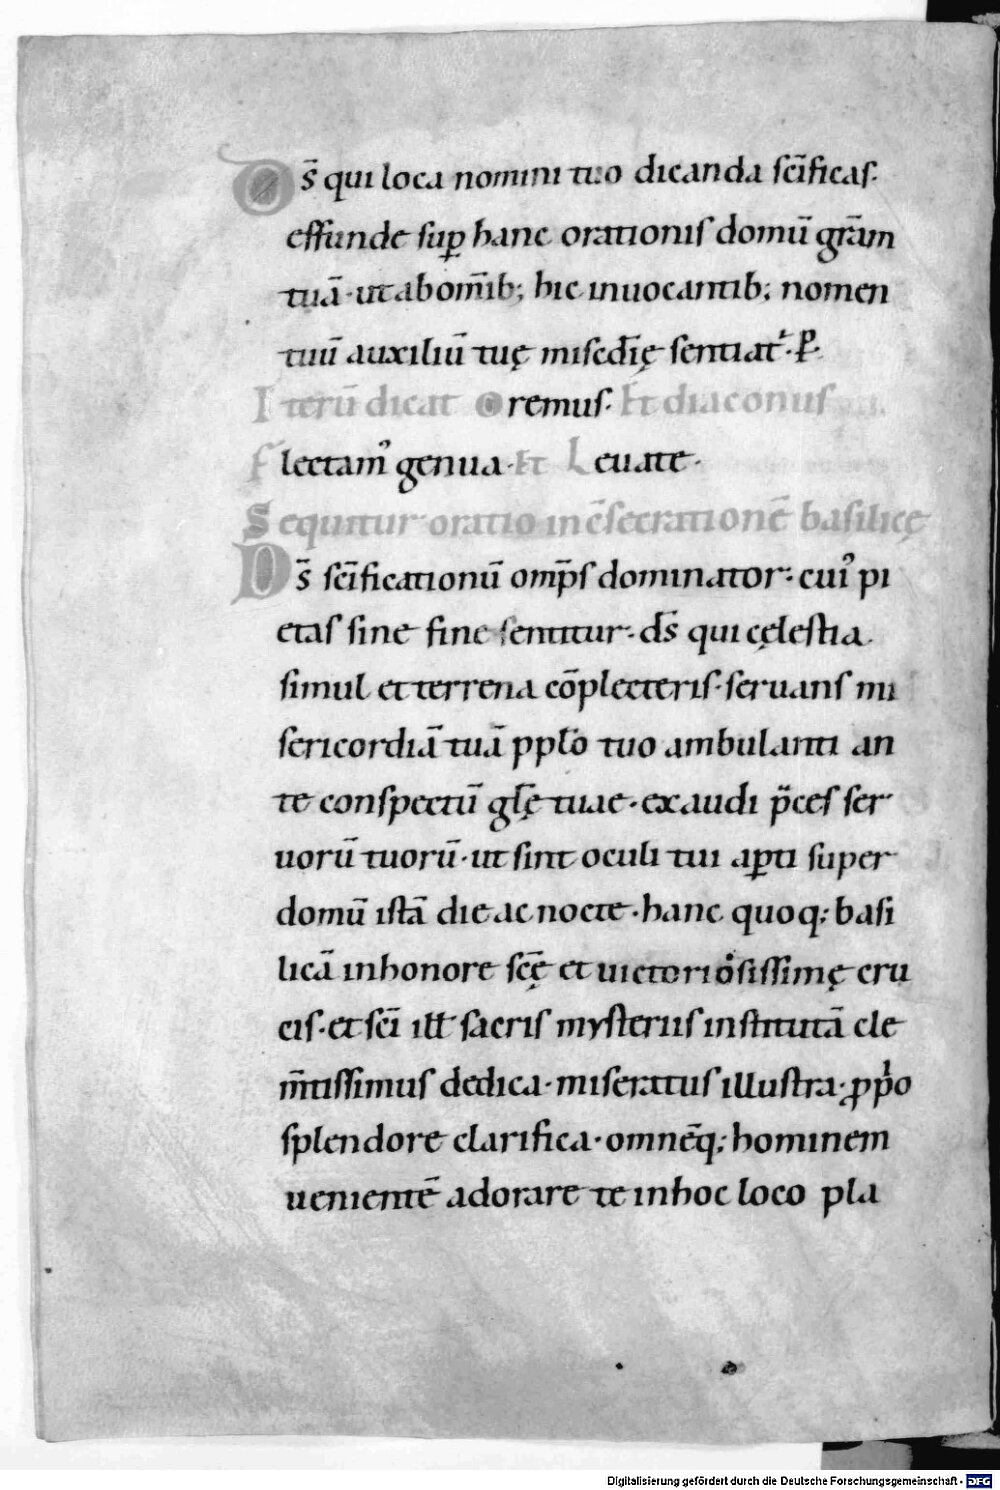 Ds̄ qui loca nomini tuo dicanda sc̄ificas.
effunde sup̱ hanc orationis domū gr̄am
tuā · ut ab om̄ib; hic inuocantib; nomen
tuū auxiliū tuę misc̄dię sentiat᷑ · P̱.
Iterū dicat Oremus. Et diaconus
Flectam᾿ genua · Et Leuate ·
Sequitur oratio in c̄secrationē basilicę
Ds̄ sc̄ificationū omp̄s dominator : cui᾿ pi
etas sine fine sentitur · ds̄ qui cęlestia
simul et terrena cōplecteris · seruans mi
sericordiā tuā pplo̅ tuo ambulanti an
te conspectū gl̄ę tuae · exaudi p̄ces ser
uorū tuorū · ut sint oculi tui ap̱ti super
domū istā die ac nocte · hanc quoq; basi
licā inhonore sc̄ę et uictoriosissimę cru
cis · et sc̄i ill̄ sacris mysteriis institutā cle
m̄tissimus dedica · miseratus illustra · ꝓpͥo
splendore clarifica · omnēq; hominem
uenientē adorare te inhoc loco pla
Digitalisierung gefördert durch die Deutsche Forschungsgemeinschaft - DFG